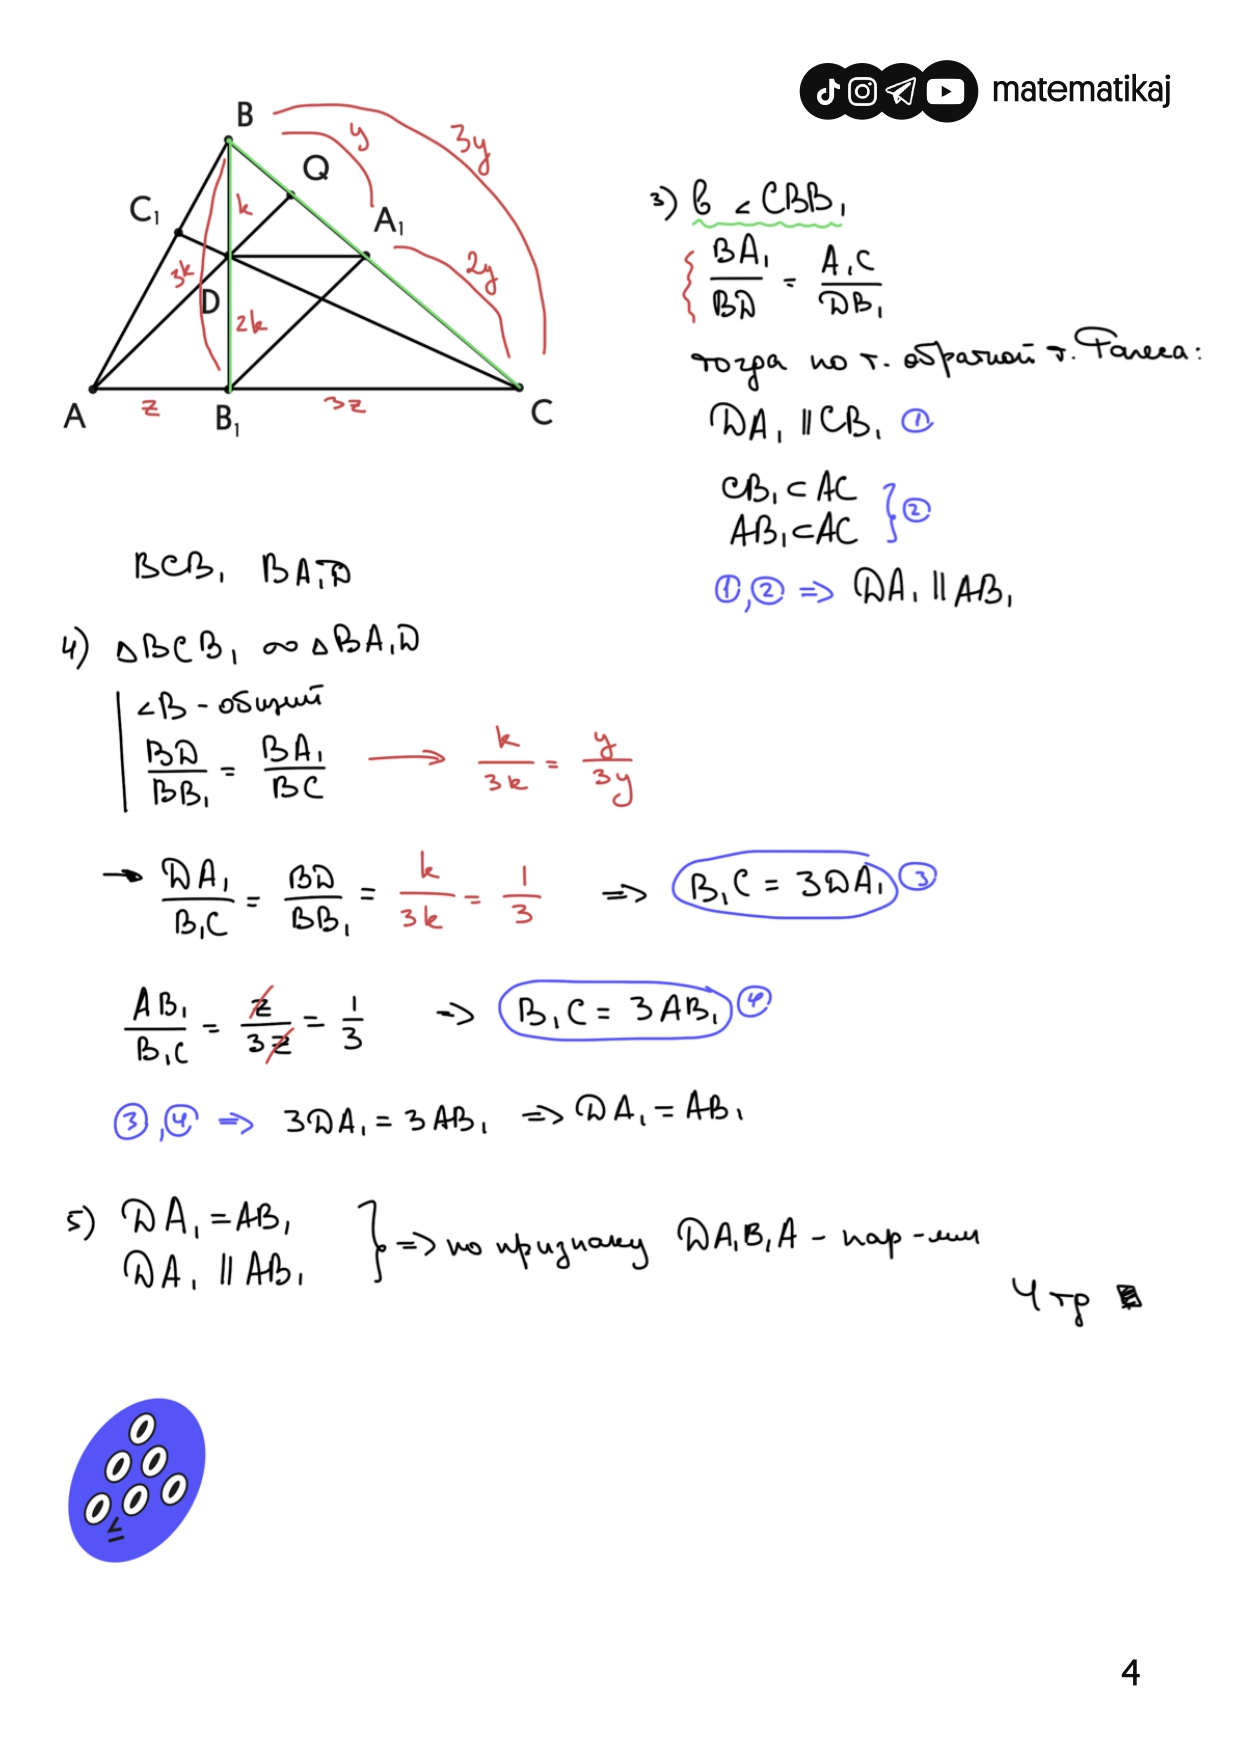 matematikaj
B
Q
C₁
A₁
D
A
B₁
C
y
3y
2y
k
3k
2k
z
3z
3) в ∠CBB₁
BA₁/BD = A₁C/DB₁
тогда по т. обратной т. Фалеса:
DA₁ ∥ CB₁ ①
CB₁ ⊂ AC
AB₁ ⊂ AC } ②
①,② ⇒ DA₁ ∥ AB₁
BCB₁ BA₁D
4) △BCB₁ ∾ △BA₁D
∠B - общий
BD/BB₁ = BA₁/BC → k/3k = y/3y
→ DA₁/B₁C = BD/BB₁ = k/3k = 1/3 ⇒ B₁C = 3DA₁ ③
AB₁/B₁C = z/3z = 1/3 ⇒ B₁C = 3AB₁ ④
③,④ ⇒ 3DA₁ = 3AB₁ ⇒ DA₁ = AB₁
5) DA₁ = AB₁
DA₁ ∥ AB₁ } ⇒ по признаку DA₁B₁A - пар-мм
Чтр
4